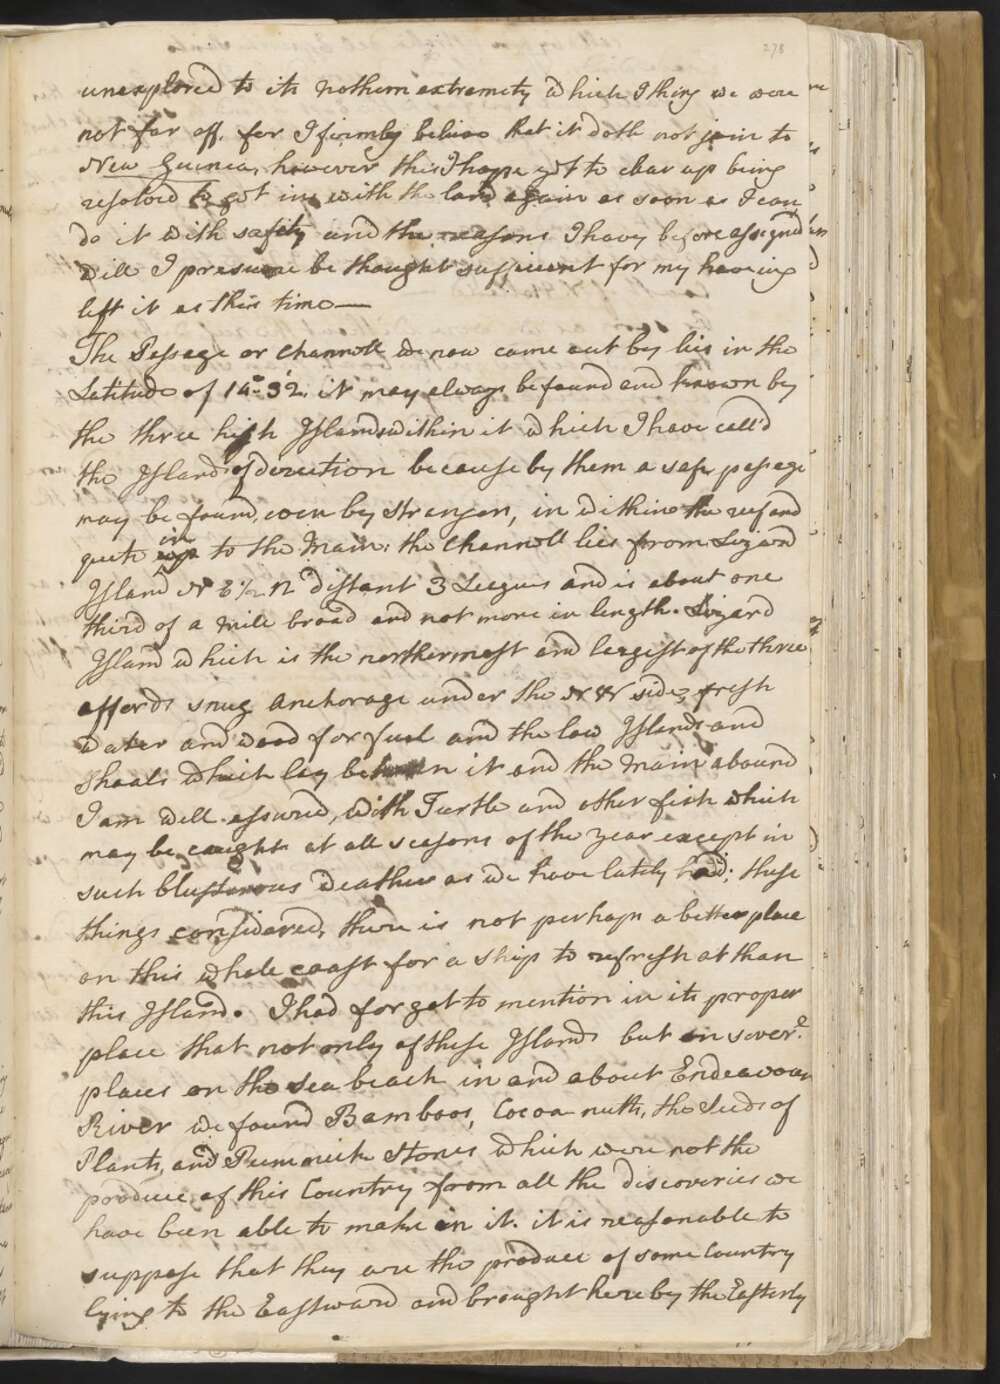 278
unexplored to its nothern extremety which I think we were
not far off, for I firmly believe that it doth not join to
New Guinea, however this I hope yet to clear up being
resolved to get in with the land again as soon as I can
do it with safity and the reasons I have before assigned
will I presume be thought sufficient for my haveing
left it at this time —
The Passage or Channell we now came out by lies in the
Latitude of 14°..32' it may always be found and known by
the three high Islands within it which I have call'd
the Islands of direction because by them a safe passage
may be found, even by strangers, in within the reef and
quite in to the Main: the Channell lies from Lizard
Island N E ½ N distant 3 Leagues and is about one
third of a mile broad and not more in length. Lizard
Island which is the northermost and largest of the three
affords snug Anchorage under the N W side, fresh
water and wood for fuel and the low Islands and
Shoals which lay between it and the Main abound
I am well assured, with Turtle and other fish which
may be caught at all seasons of the year except in
such blusterous weather as we have lately had; these
things considered, there is not perhaps a better place
on this whole coast for a Ship to refresh at than
this Island. I had forgot to mention in its proper
place that not only of these Islands but on sever.l
places on the Sea beach in and about Endeavour
River we found Bamboos, Cocoa nutts, the Seeds of
Plants, and Pummick Stones which were not the
produce of this Country from all the discoveries we
have been able to make in it. it is reasonable to
suppose that they are the produce of some Country
lying to the Eastward and brought here by the Easterly